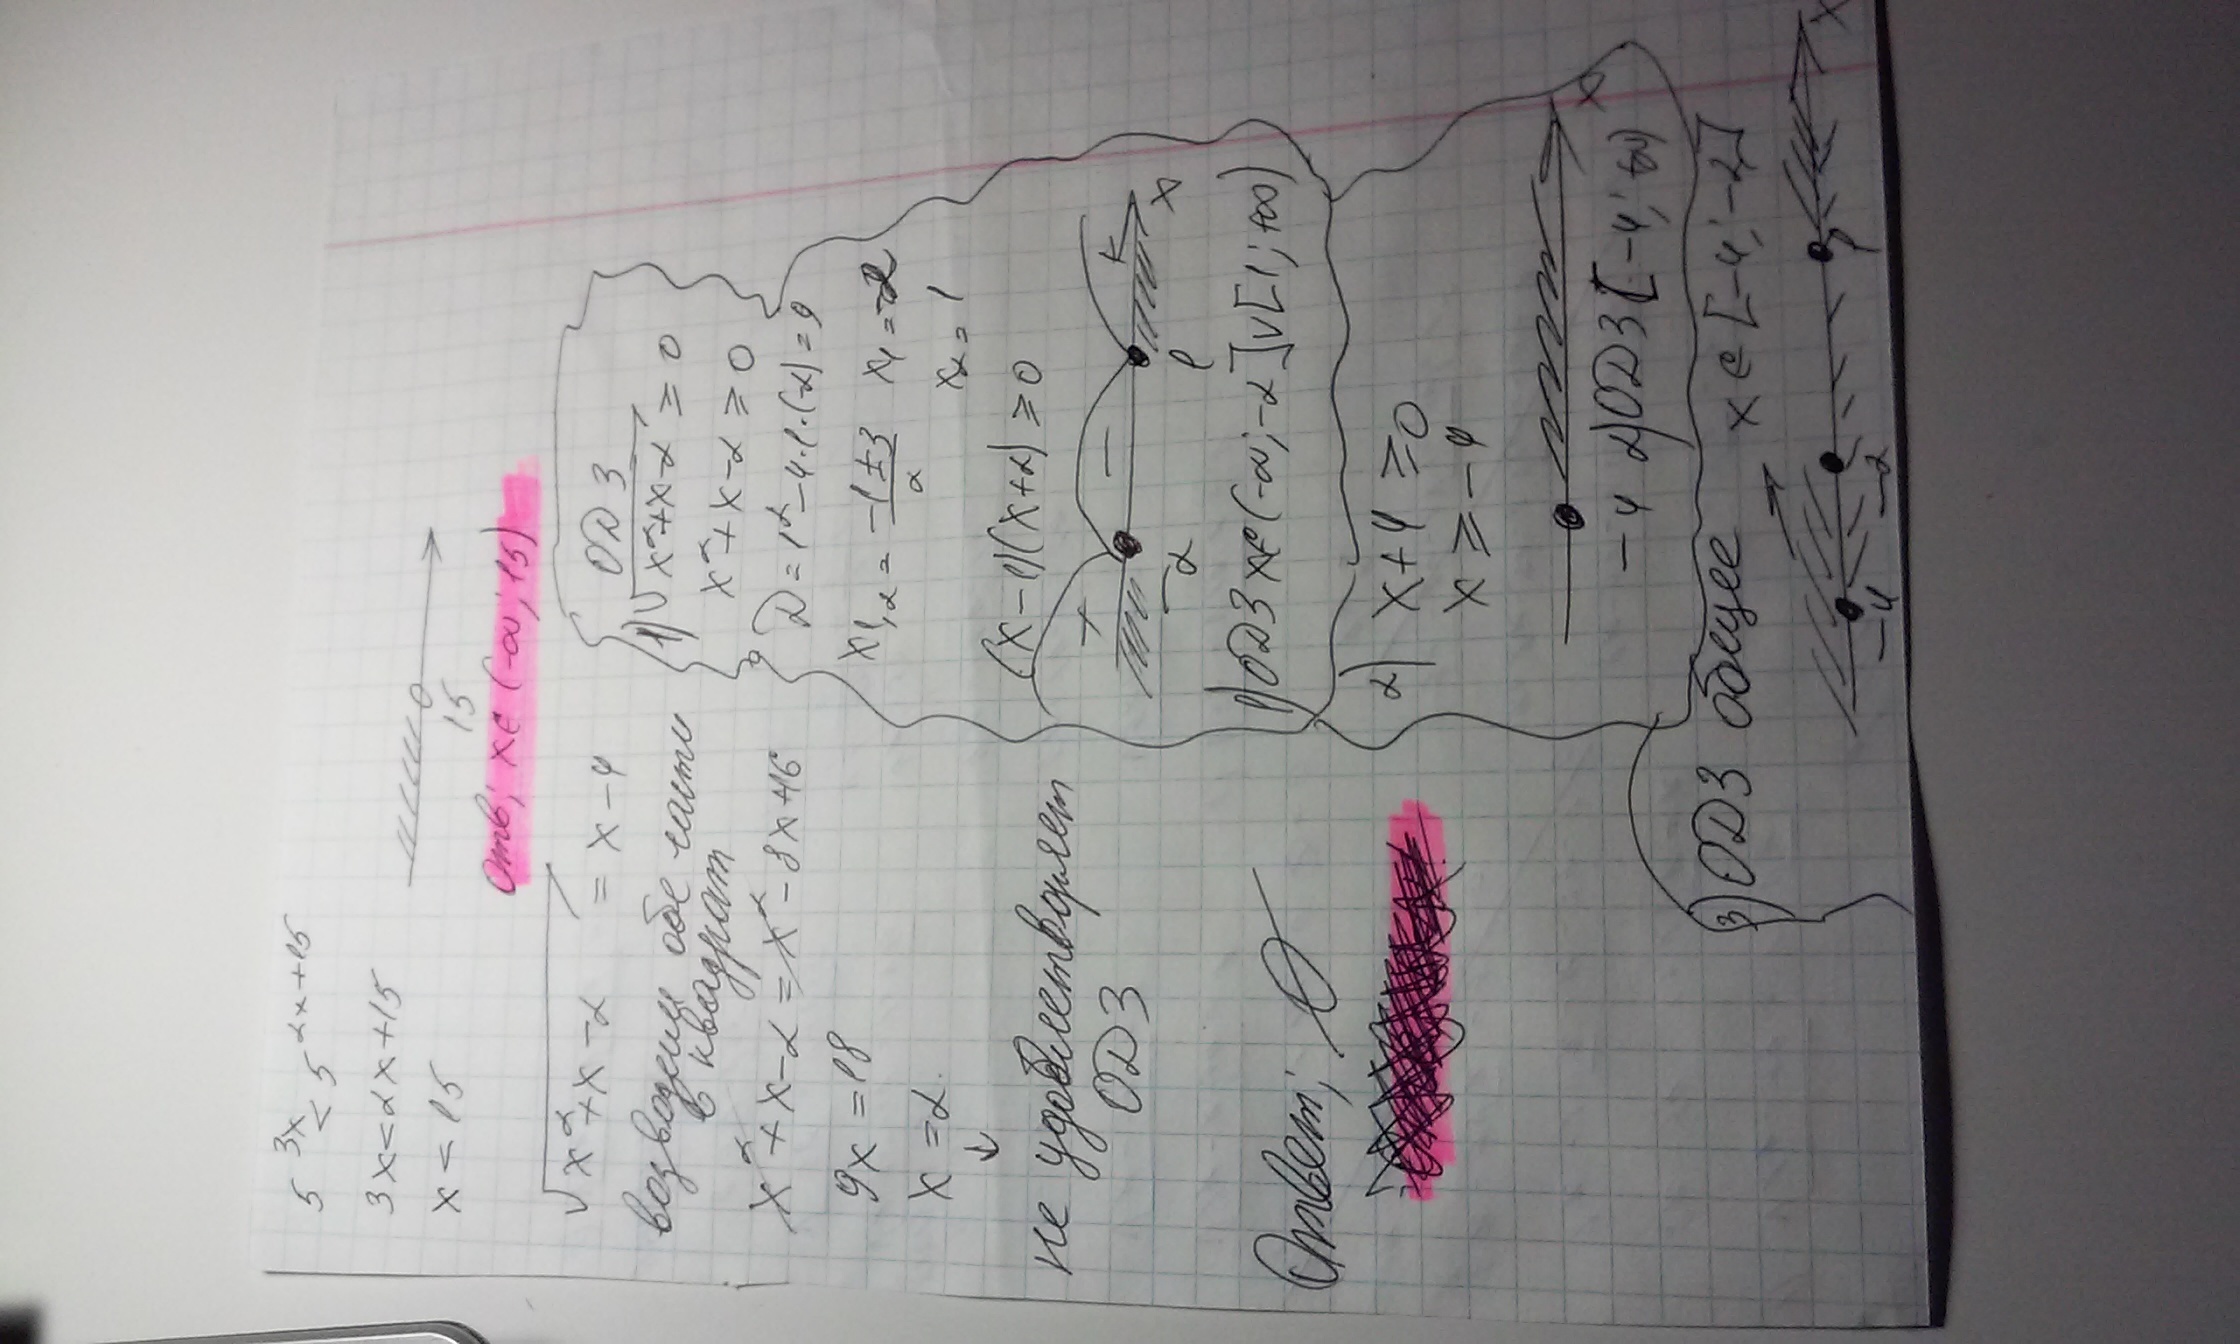 5^{3x} < 5^{2x+15}
3x < 2x + 15
x < 15
15
Отв; x ∈ (-∞; 15)
√(x² + x - 2) = x - 4
возводим обе части
в квадрат
x² + x - 2 = x² - 8x + 16
9x = 18
x = 2
не удовлетворяет
ОДЗ
Ответ; ∅
ОДЗ
1) √(x² + x - 2) ≥ 0
x² + x - 2 ≥ 0
D = 1² - 4·1·(-2) = 9
x1,2 = (-1 ± 3)/2 x1 = -2
x2 = 1
(x - 1)(x + 2) ≥ 0
+ - +
-2 1 x
1) ОДЗ x ∈ (-∞; -2] ∨ [1; +∞)
2) x + 4 ≥ 0
x ≥ -4
x
-4 2) ОДЗ [-4; +∞)
3) ОДЗ общее x ∈ [-4; -2]
-4 -2 1 x